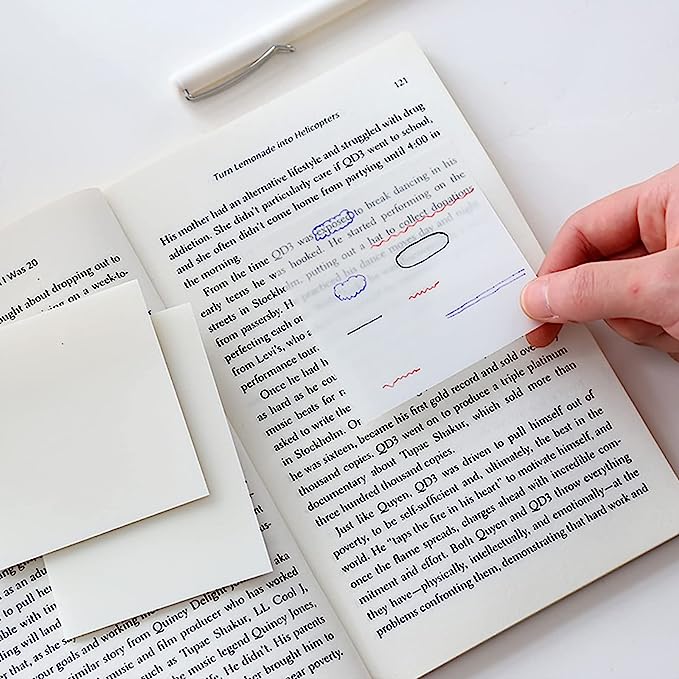 I Was 20
ought about dropping out to
ng on a week-to-
aka
similar story from Quincy Delight
music and film producer who has worked
such as Tupac Shakur, LL Cool J,
the music legend Quincy Jones,
He didn't. His parents
brought him to
near poverty.
121
Turn Lemonade into Helicopters
His mother had an alternative lifestyle and struggled with drug
addiction. She didn't particularly care if QD3 went to school,
and she often didn't come home from partying until 4:00 in
the morning.
From the time QD3 was exposed to break dancing in his
early teens he was hooked. He started performing on the
streets in Stockholm, putting out a hat to collect donations
from passersby. H practiced his dance moves day and night
perfecting each
from Levi's, who
performance tour.
Once he had
as hard as he cou
music beats for
asked to write the
in Stockholm. sold over
he was sixteen, became his first gold record and
thousand copies. QD3 went on to produce a triple platinum
documentary about Tupac Shakur, which sold more than
three hundred thousand copies.
Just like Quyen, QD3 was driven to pull himself out of
poverty, to be self-sufficient and, ultimately, the best in the
world. He "taps the fire in his heart" to motivate himself, and
once the flame spreads, charges ahead with incredible com-
mitment and effort. Both Quyen and QD3 throw everything
they have—physically, intellectually, and emotionally—at the
problems confronting them, demonstrating that hard work and